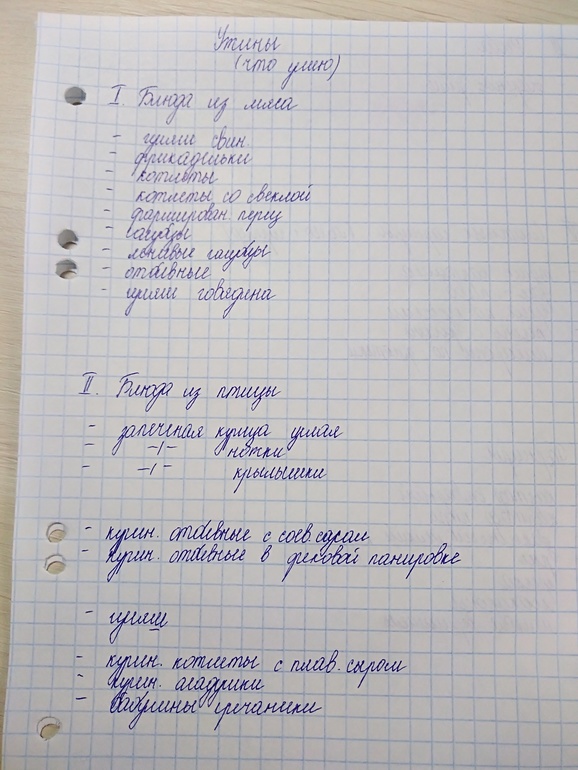 Ужины
(что умею)
I Блюда из мяса
- гуляш свин.
- фрикадельки
- котлеты
- котлеты со свеклой
- фарширован. перец
- голубцы
- ленивые голубцы
- отбивные
- гуляш говядина
II. Блюда из птицы
- запеченая курица целая
- -/- ножки
- -/- крылышки
- курин. отбивные с соев.
- курин. отбивные в панировке
- гуляш
- курин. котлеты с плав. сыром
- курин. оладушки
- бабушины гречаники